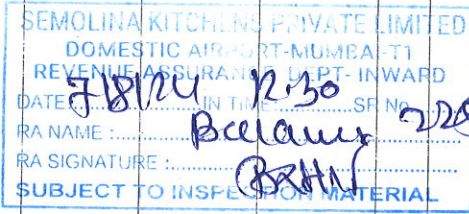 SEMOLINA KITCHENS PRIVATE LIMITED
DOMESTIC AIRPORT-MUMBAI-T1
REVENUE ASSURANCE DEPT- INWARD
DATE 7/8/24 IN TIME 12.30 SR No.
RA NAME :
RA SIGNATURE :
SUBJECT TO INSPECTION MATERIAL